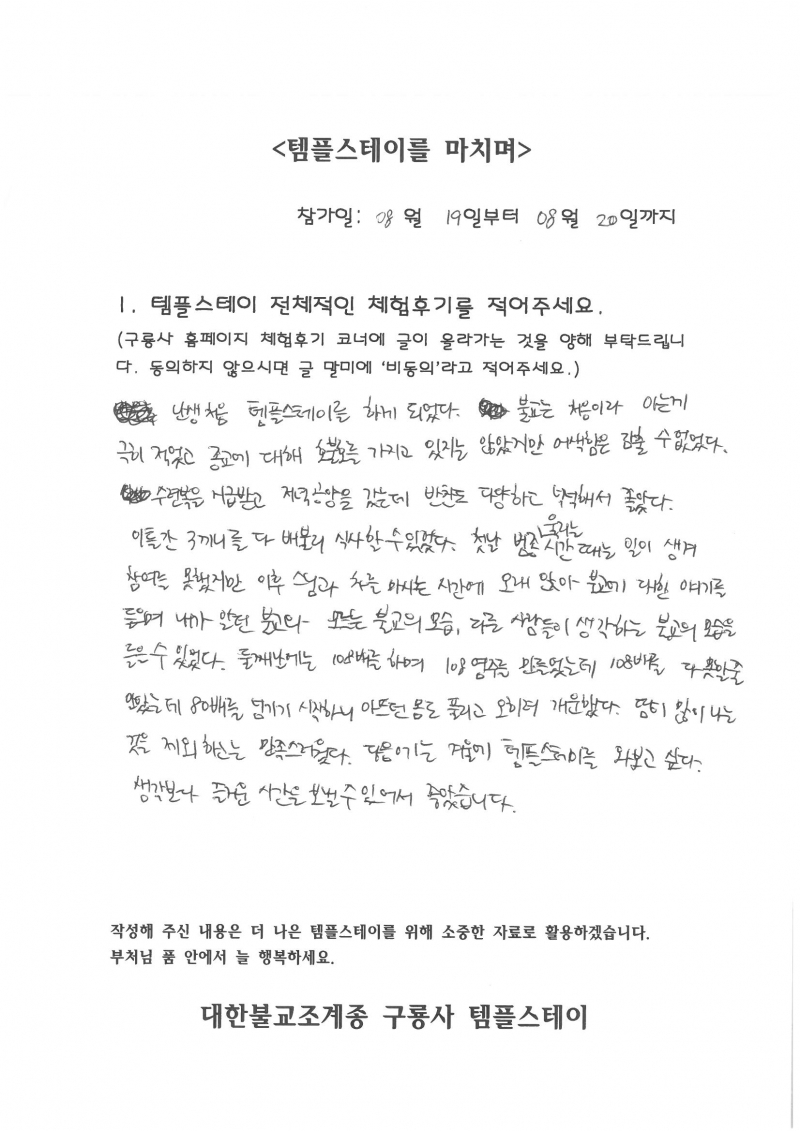 <템플스테이를 마치며>
참가일: 08 월 19일부터 08월 20일까지
1. 템플스테이 전체적인 체험후기를 적어주세요.
(구룡사 홈페이지 체험후기 코너에 글이 올라가는 것을 양해 부탁드립니
다. 동의하지 않으시면 글 말미에 '비동의'라고 적어주세요.)
난생처음 템플스테이를 하게 되었다. 불교는 처음이라 아는게
극히 적었고 종교에 대해 호불호를 가지고 있지는 않았지만 어색함은 감출 수 없었다.
수련복을 지급받고 저녁공양을 갔는데 반찬도 다양하고 넉넉해서 좋았다.
이틀간 3끼니를 다 배불리 식사할 수 있었다. 첫날 범종 울리는 시간 때는 일이 생겨
참여를 못했지만 이후 스님과 차를 마시는 시간에 오래 앉아 불교에 대한 얘기를
들으며 내가 알던 불교와 모르는 불교의 모습, 다른 사람들이 생각하는 불교의 모습을
들을 수 있었다. 둘째날에는 108배를 하며 108염주를 만들었는데 108배를 다 못할줄
알았는데 80배를 넘기기 시작하니 아프던 몸도 풀리고 오히려 개운했다. 땀이 많이 나는
것을 제외하고는 만족스러웠다. 다음에는 겨울에 템플스테이를 와보고 싶다.
생각보다 즐거운 시간을 보낼 수 있어서 좋았습니다.
작성해 주신 내용은 더 나은 템플스테이를 위해 소중한 자료로 활용하겠습니다.
부처님 품 안에서 늘 행복하세요.
대한불교조계종 구룡사 템플스테이